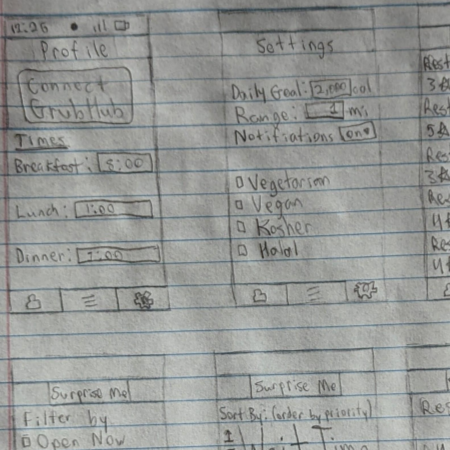 12:25
Profile
Connect
GrubHub
Times
Breakfast: 8:00
Lunch: 1:00
Dinner: 7:00
Settings
Daily Goal: 2,000 cal
Range: 1 mi
Notifiations on
Vegetarian
Vegan
Kosher
Halal
Rest
3
Rest
5
Rest
3
Res
4
Res
4
Surprise Me
Filter by
Open Now
Surprise Me
Sort By: (order by priority)
1 Wait Time
Res